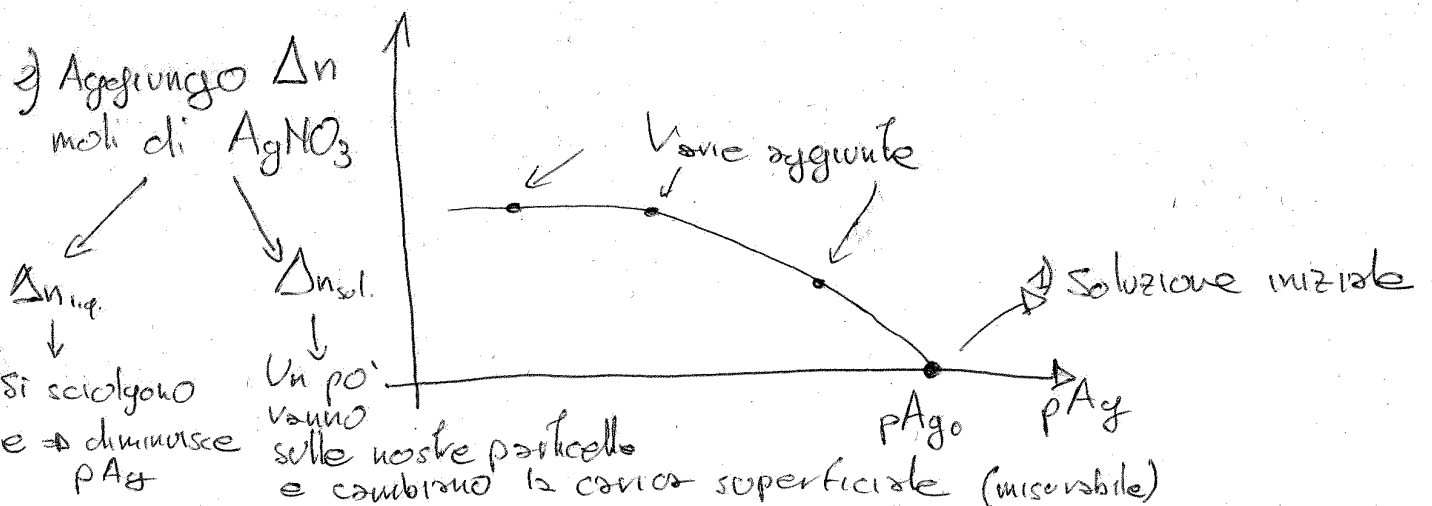 2) Aggiungo Δn
moli di AgNO3
Δn liq.
↓
Si sciolgono
e ⇒ diminuisce
pAg
Δn sol.
↓
Un pò
vanno
sulle nostre particelle
e cambiano la carica superficiale (misurabile)
Varie aggiunte
1) Soluzione iniziale
pAg0
pAg